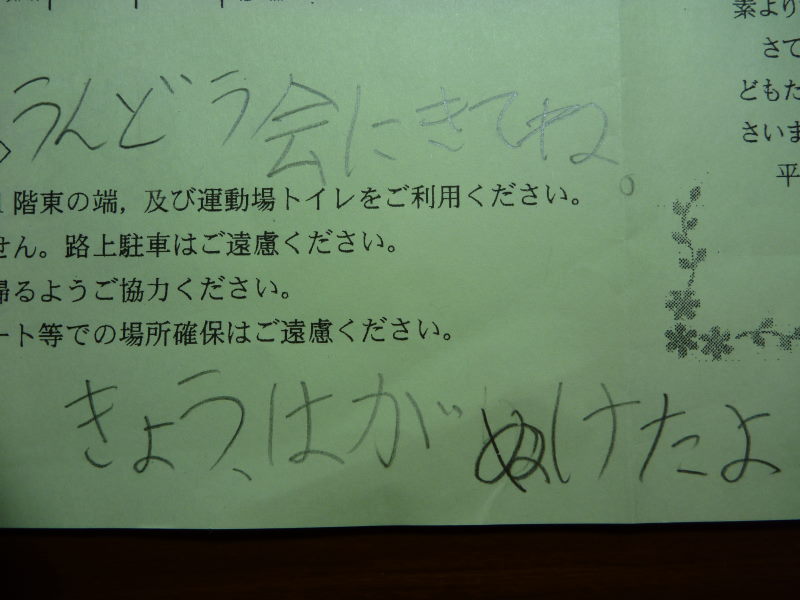 うんどう会にきてね。
階東の端，及び運動場トイレをご利用ください。
せん。路上駐車はご遠慮ください。
帰るようご協力ください。
ート等での場所確保はご遠慮ください。
きょう、はがぬけたよ
素より
さて
どもた
さいま
平